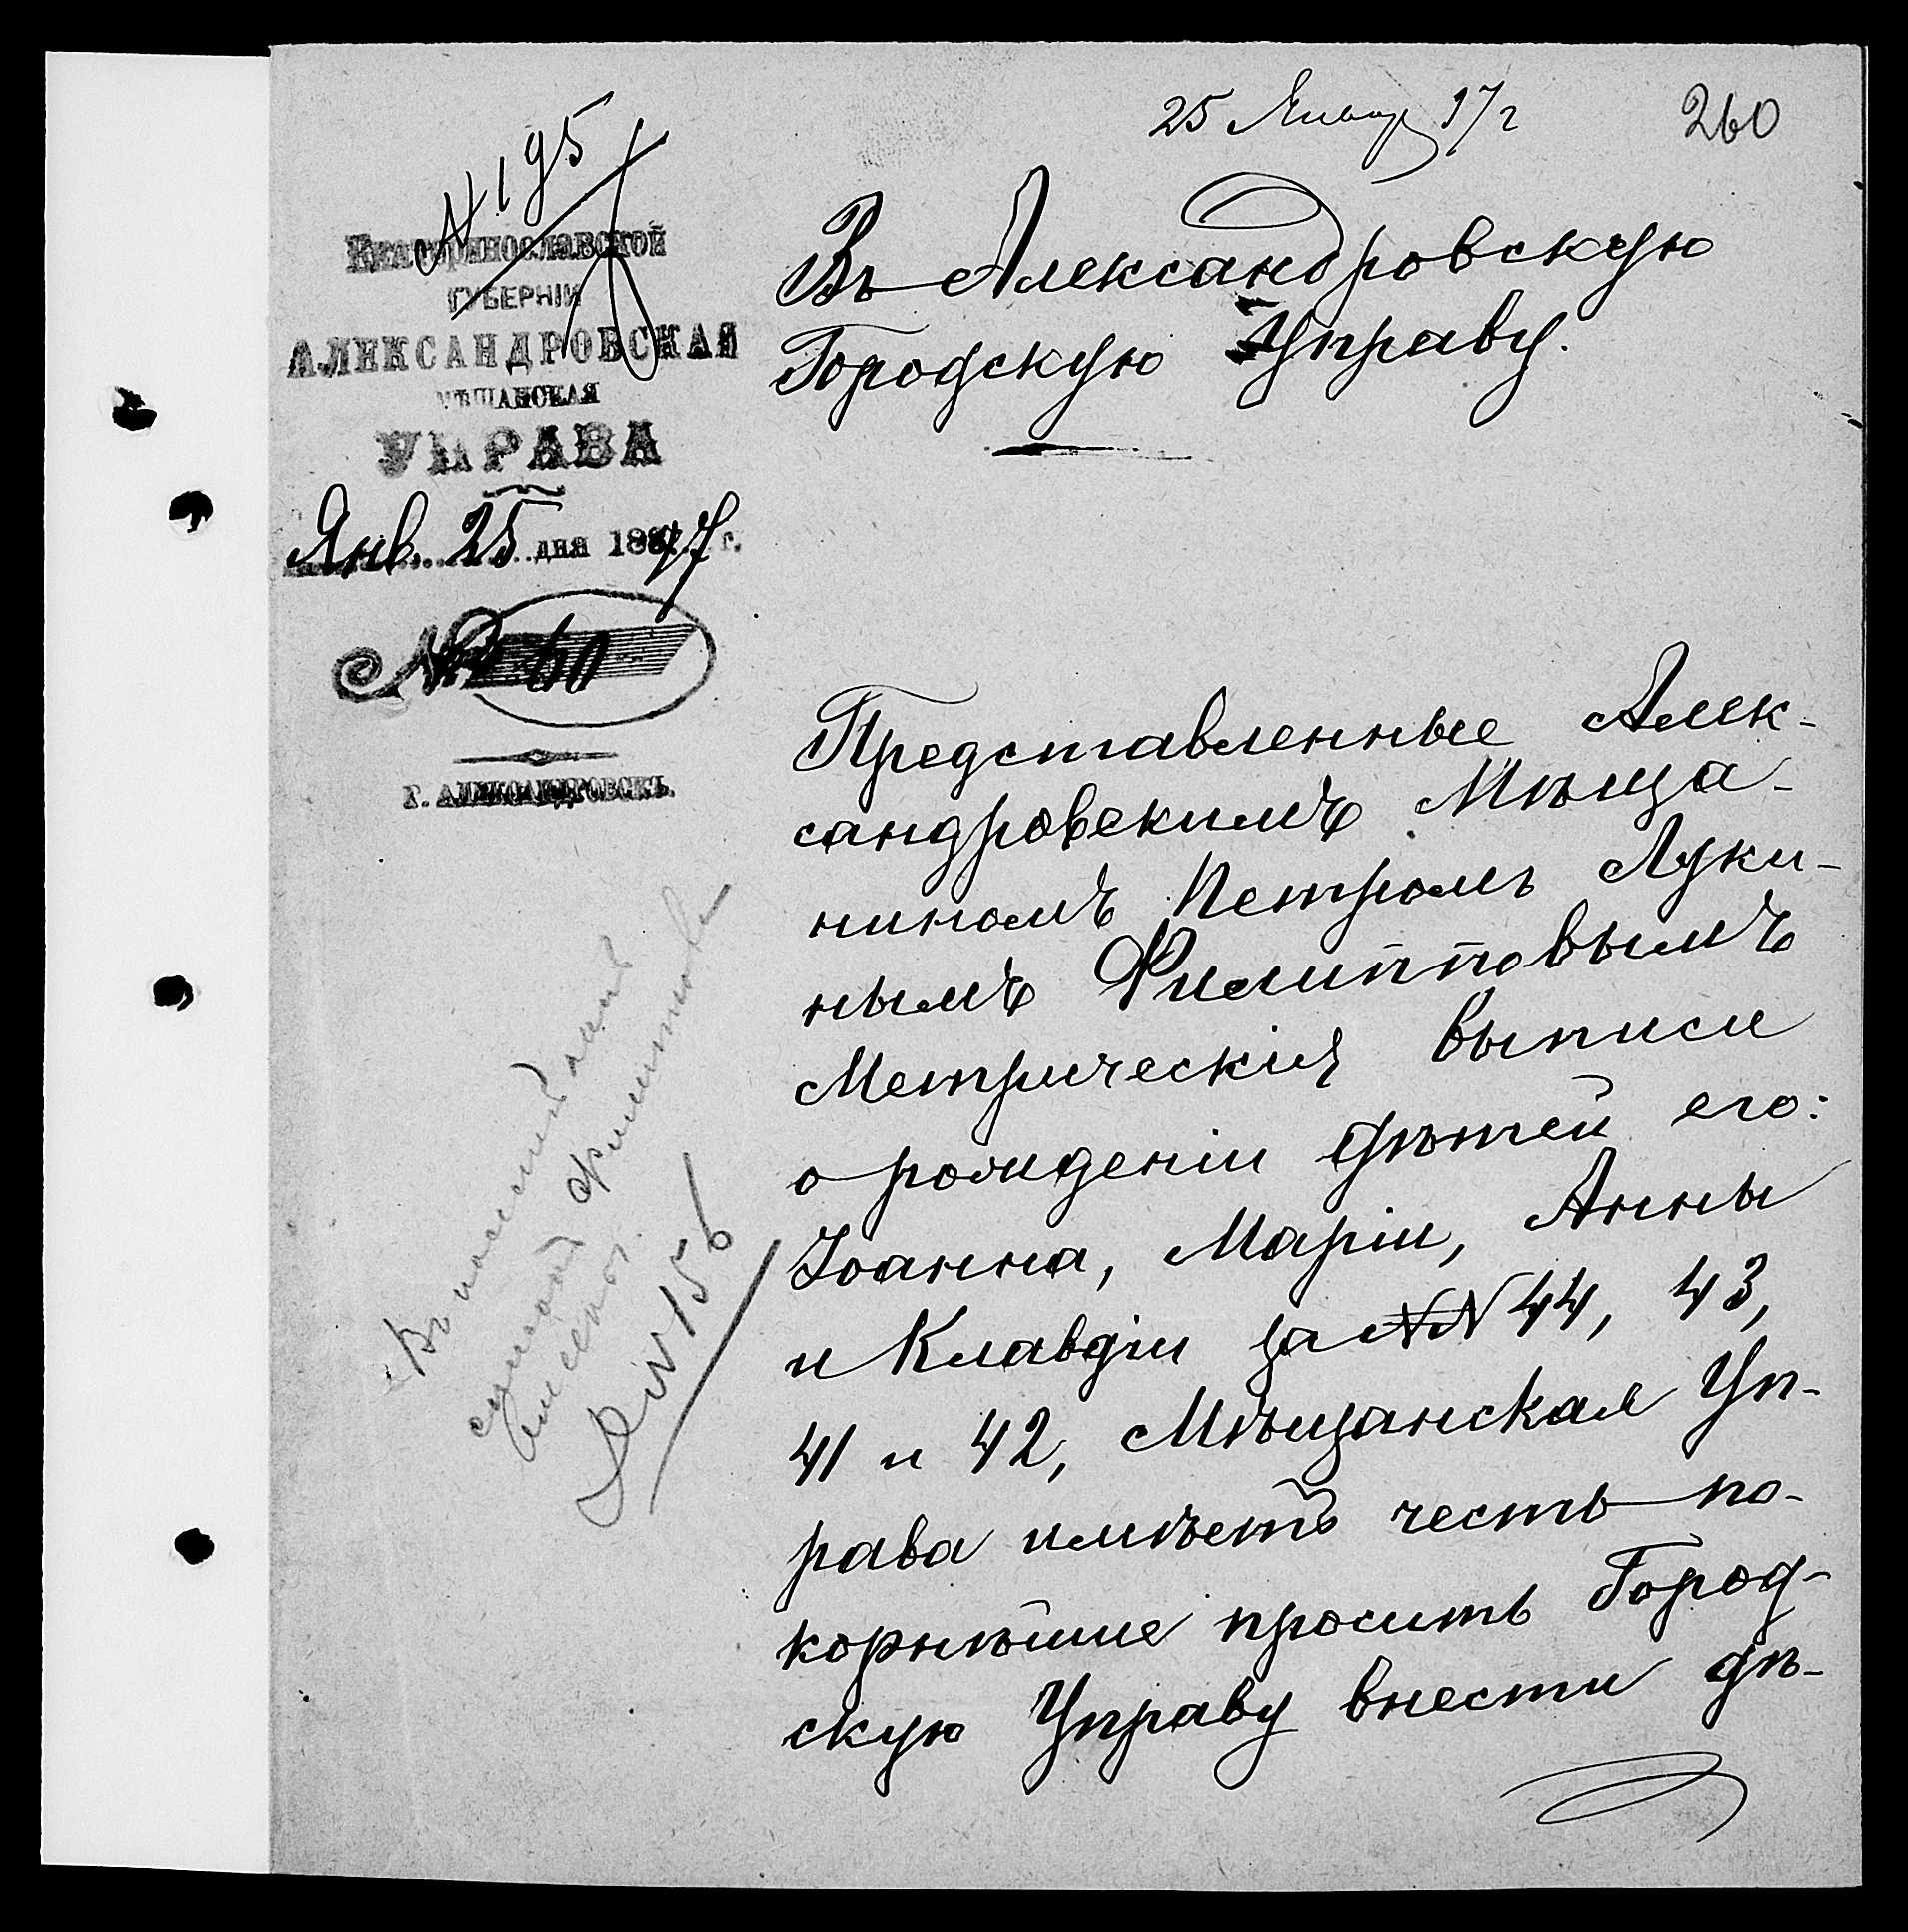 25 Январ 97 г
260
№ 195
Екатеринославской
ГУБЕРНІИ
АЛЕКСАНДРОВСКАЯ
МѢЩАНСКАЯ
УПРАВА
Янв. 25 дня 1897 г.
№ 60
Г. АЛЕКСАНДРОВСКЪ.
Въ Александровскую
Городскую Управу.
Представленные Алек-
сандровскимъ Мѣща-
ниномъ Петромъ Луки-
нымъ Филипповымъ
Метрическія выписи
о рожденіи дѣтей его:
Іоанна, Маріи, Анны
и Клавдіи за №№ 44, 43,
41 и 42, Мѣщанская Уп-
рава имѣетъ честь по-
корнѣйше просить Город-
скую Управу внести дѣ-
Въ посемейный
Филиппова
№ 156